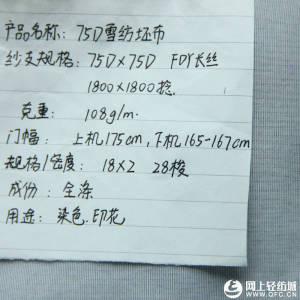 产品名称: 75D雪纺坯布
纱支规格: 75D×75D FDY长丝
1800×1800捻.
克重: 108g/m.
门幅: 上机175cm, 下机165-167cm
规格/密度: 18×2 28梭
成份: 全涤
用途: 染色.印花
网上轻纺城
WWW.QFC.CN